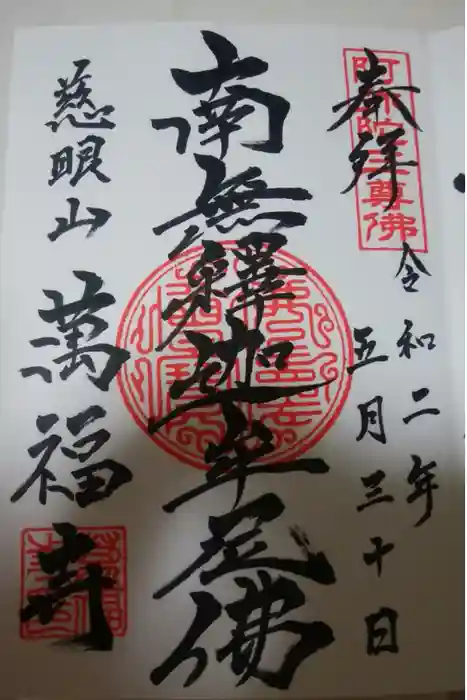 奉拝
阿弥陀三尊佛
令和二年
五月三十日
南無釋迦牟尼佛
慈眼山
萬福寺